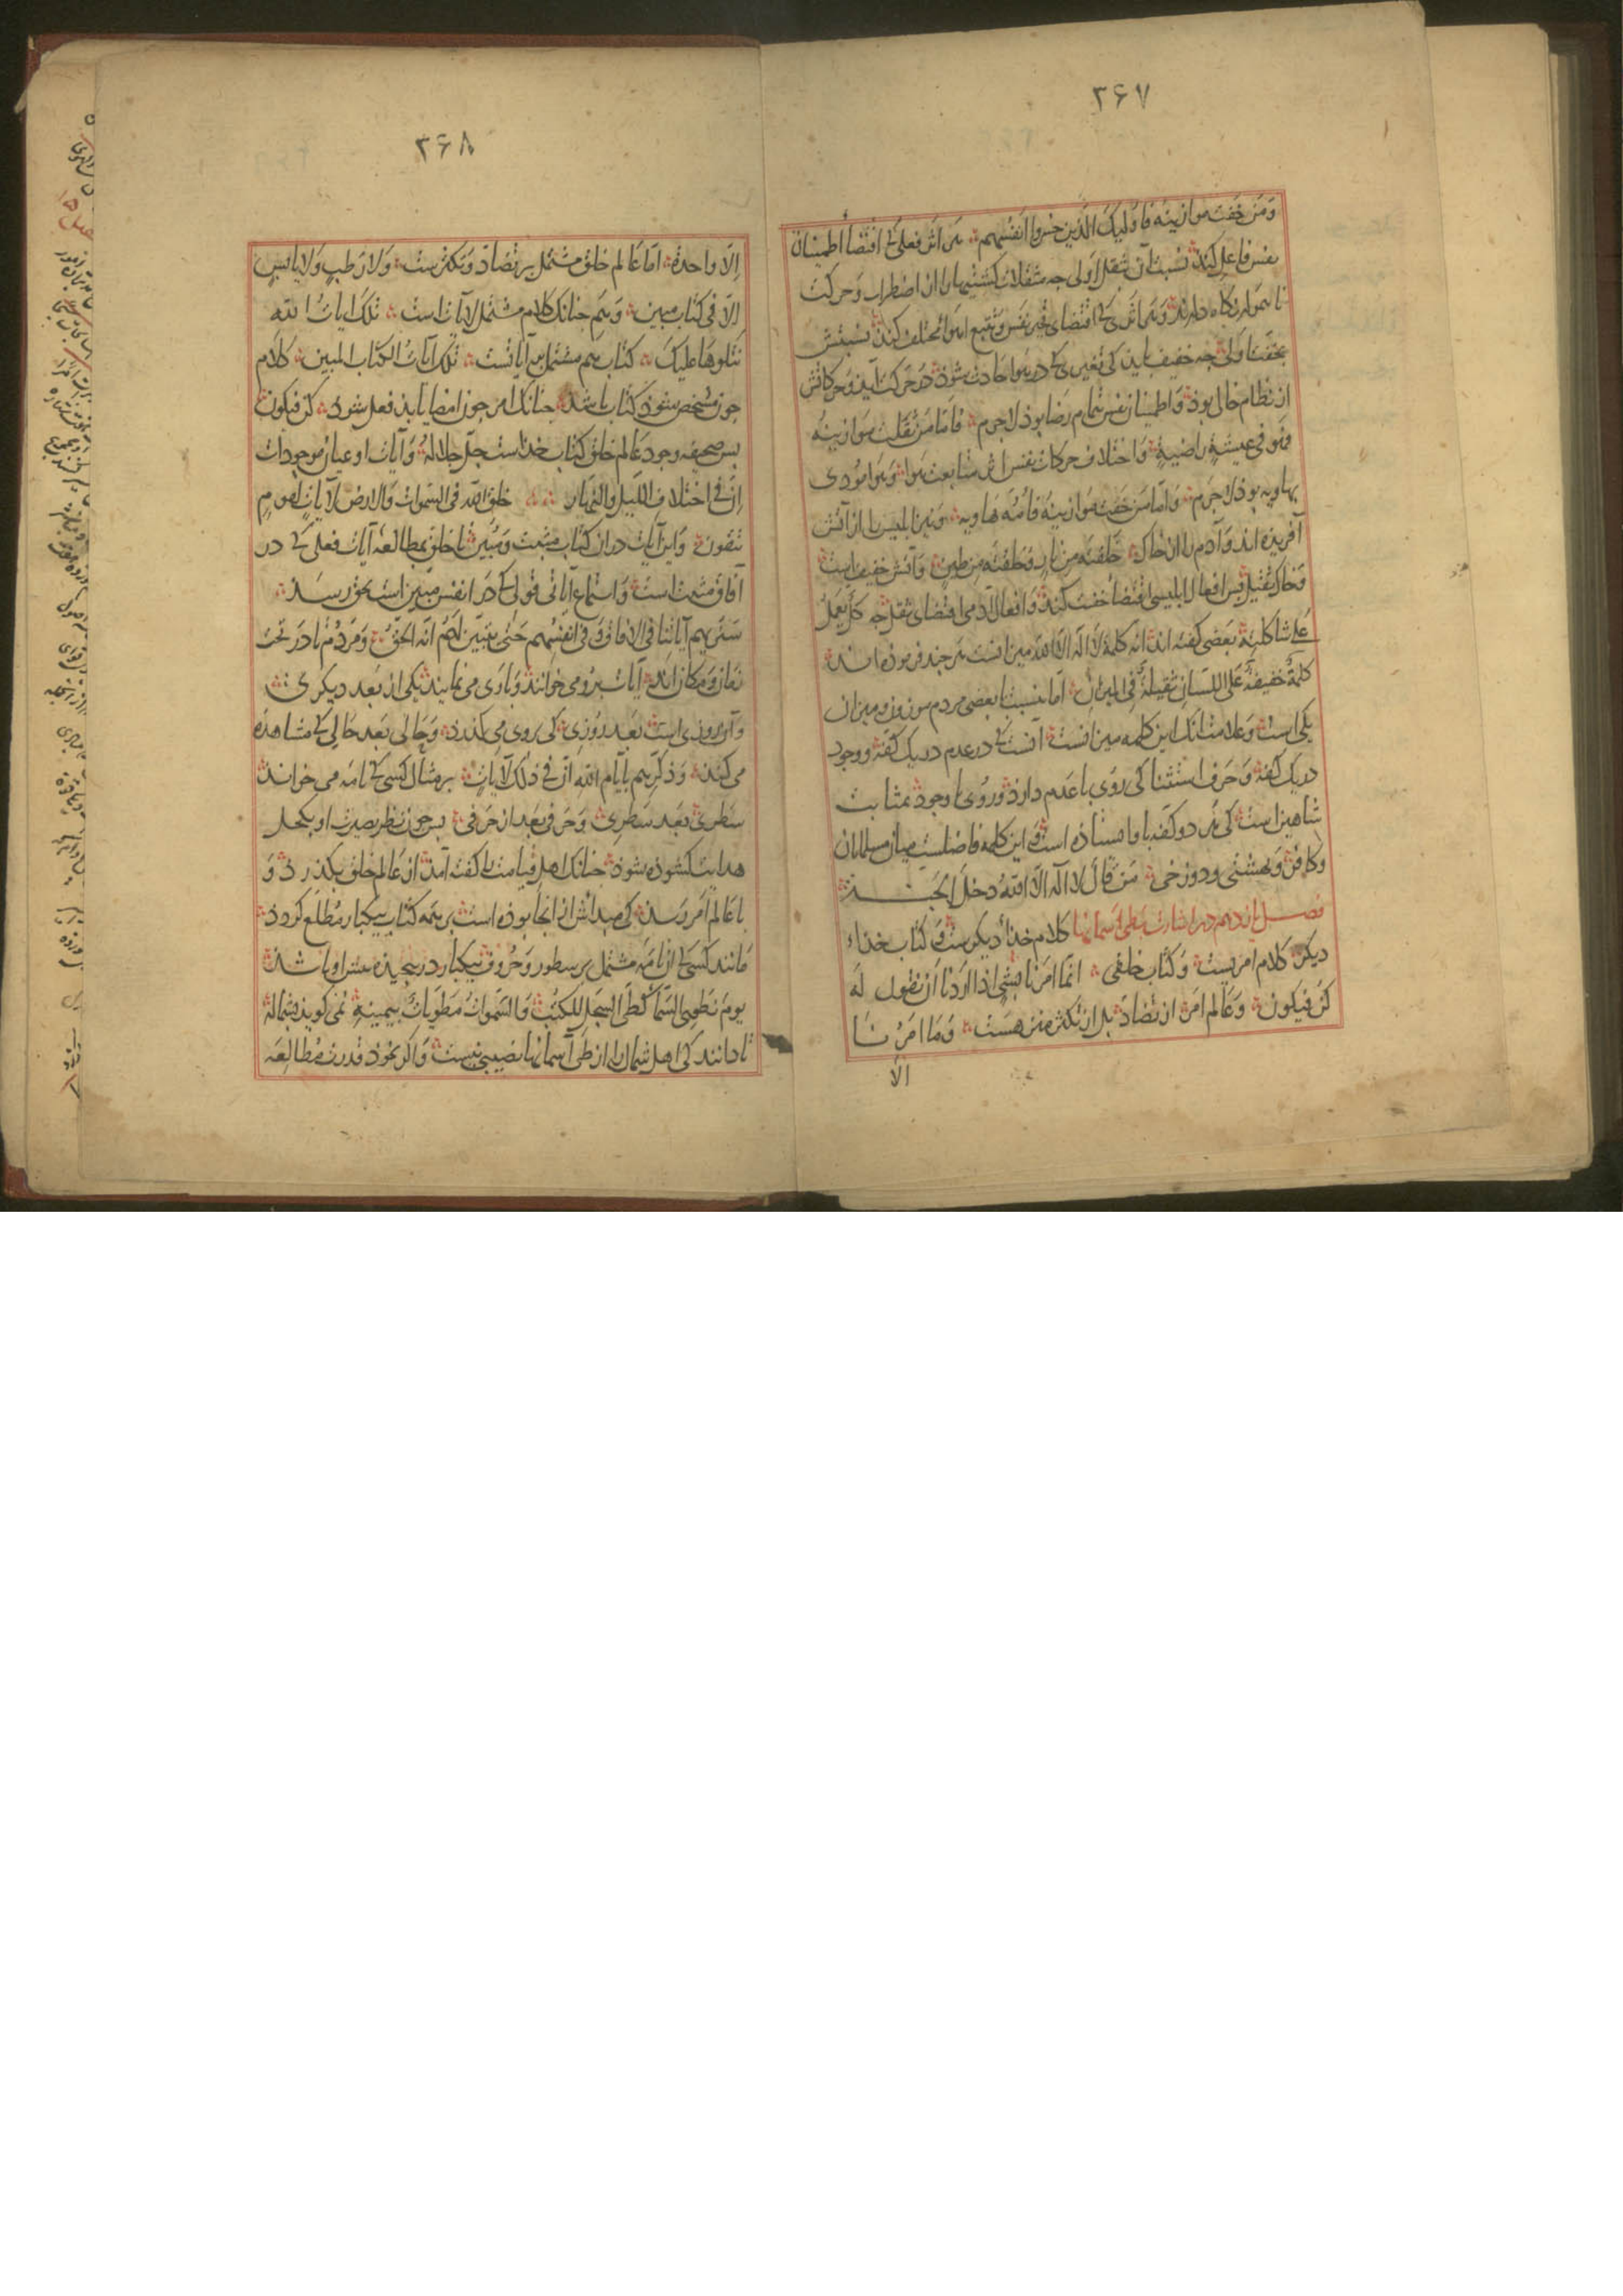 ۳۶۷
وَمَن خَفَّت موازینه فاولیک الّذین خسروا انفسهم هر اثر فعلی کی اقتضاء اطمینان
نفس فاعل کند نسبت آن بثقل اولی جه مثقلات کشتیها را از اضطراب و حرکت
ناهموار نگاه دارند و هر اثری کی اقتضای تحیر نفس و تتبع اهواء مختلف کند نسبتش
بخفت اولی جه خفیف باید کی تغیری کی در هوا حادث شود در حرکت آید و حرکاتش
از نظام خالی بود و اطمینان نفس تمام رضا بود لاجرم فاما من ثقلت موازینه
فهو فی عیشة راضیة و اختلاف حرکات نفس اثر متابعت هوا و هوا مودی
بهاویه بود لاجرم و اما من خفت موازینه فامه هاویه و نیز ابلیس را از آتش
آفریده اند و آدم را از خاک خلقته من نار و خلقته من طین و آتش خفیف است
و خاک ثقیل پس افعال ابلیسی اقتضاء خفت کند و افعال آدمی اقتضای ثقل جه کل یعمل
علی شاکلته بعضی گفته اند که کلمه لا اله الا الله میزانست هر جند فرموده اند
کلمة خفیفة علی اللسان ثقیلة فی المیزان اما بنسبت با بعضی مردم موزون و میزان
یکی است و علامت آنک این کلمه میزانست آنست کی در عدم در یک کفه و وجود
در یک کفه و حرف استثنا کی روی با عدم دارد و روی با وجود بمثابت
شاهین است کی هر دو کفه باو ایستاده است و این کلمه فاصلست میان مسلمانان
و کافر و بهشتی و دوزخی من قال لا اله الا الله دخل الجنـــة
فصـل یازدهم در اشارت بطی آسمانها کلام خدا دیکرست و کتاب خداء
دیکر کلام امریست و کتاب خلقی انما امرنا بشیء اذا اردنا ان نقول له
کن فیکون و عالم امر از تضاد بل از تکثر منزهست و ما امرنا
الا
۳۶۸
الّا واحدة امّا عالم خلق مشتمل بر تضاد و تکثرست و لا رطب و لا یابس
الّا فی کتاب مبین و هم جنانک کلام مشتمل بر آیاتست تلک آیات الله
نتلوها علیک کتاب هم مشتمل بر آیاتست تلک آیات الکتاب المبین کلام
جون مشخص شود کتاب باشد جنانک امر جون امضا یابد فعل شود کن فیکون
بس صحیفه وجود عالم خلق کتاب خداست جلّ جلاله و آیات او اعیان موجودات
انّ فی اختلاف اللیل والنهار و ما خلق الله فی السموات والارض لآیات لقوم
یتقون و این آیات در آن کتاب مثبت و مبین تا خلق بمطالعه آیات فعلی کی در
آفاق مثبت است و استماع آیات قولی کی در انفس مبین است بحق رسند
سنریهم آیاتنا فی الافاق و فی انفسهم حتی یتبیّن لهم انّه الحقّ و مردم تا در تحت
زمان و مکان اند آیات برو می خوانند و باوی می نمایند یکی از بعد دیکری
و آن روزی است بعد روزی کی بروی می کذرد و حالی بعد حالی کی مشاهده
می کند و ذکّرهم بایام الله انّ فی ذلک لآیات بر مثال کسی کی نامه می خواند
سطری بعد سطری و حرفی بعد از حرفی بس جون نظر بصیرت او بکحل
هدایت کشوده شود جنانک اهل قیامت را کفته آمد از عالم خلق بکذرد و
با عالم امر رسد کی مبدأش از آنجا بوده است بر همه کتاب بیکبار مطلع کردد
مانند کسی کی آن نامه مشتمل بر سطور و حروف بیکبار در بیجیده بیش او باشد
یوم نطوی السّماء کطیّ السجل للکتب و السّموات مطویات بیمینه نمی کوید بشماله
تا دانند کی اهل شمال را از طی آسمانها نصیبی نیست و اکر بخود قدرت مطالعه